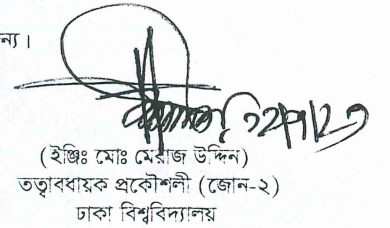 ন্য।
২২/৭/২৩
(ইঞ্জিঃ মোঃ মেরাজ উদ্দিন)
তত্ত্বাবধায়ক প্রকৌশলী (জোন-২)
ঢাকা বিশ্ববিদ্যালয়